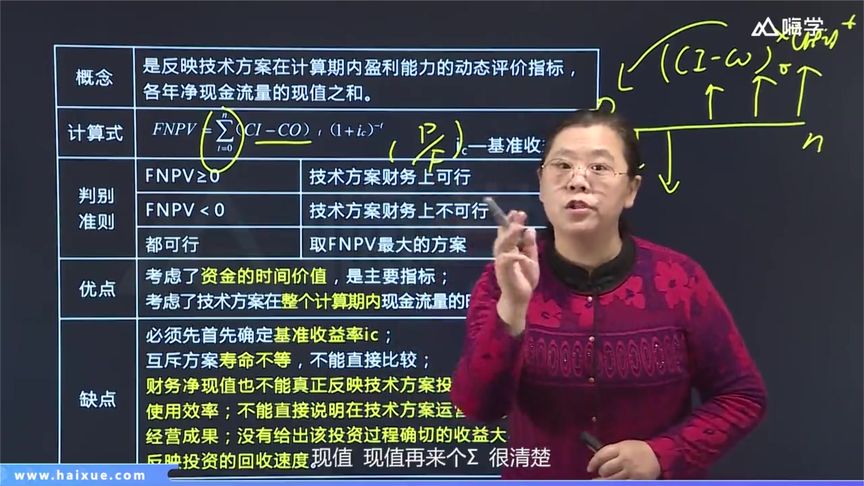 嗨学
概念
是反映技术方案在计算期内盈利能力的动态评价指标，
各年净现金流量的现值之和。
计算式
FNPV = Σ(CI－CO)ₜ(1+i꜀)⁻ᵗ
n
t=0
i꜀—基准收
(P/F)
(CI-CO)
n
判别
准则
FNPV≥0
技术方案财务上可行
FNPV＜0
技术方案财务上不可行
都可行
取FNPV最大的方案
优点
考虑了资金的时间价值，是主要指标；
考虑了技术方案在整个计算期内现金流量的
缺点
必须先首先确定基准收益率ic；
互斥方案寿命不等，不能直接比较；
财务净现值也不能真正反映技术方案投
使用效率；不能直接说明在技术方案运营
经营成果；没有给出该投资过程确切的收益大
反映投资的回收速度。
现值 现值再来个Σ 很清楚
www.haixue.com